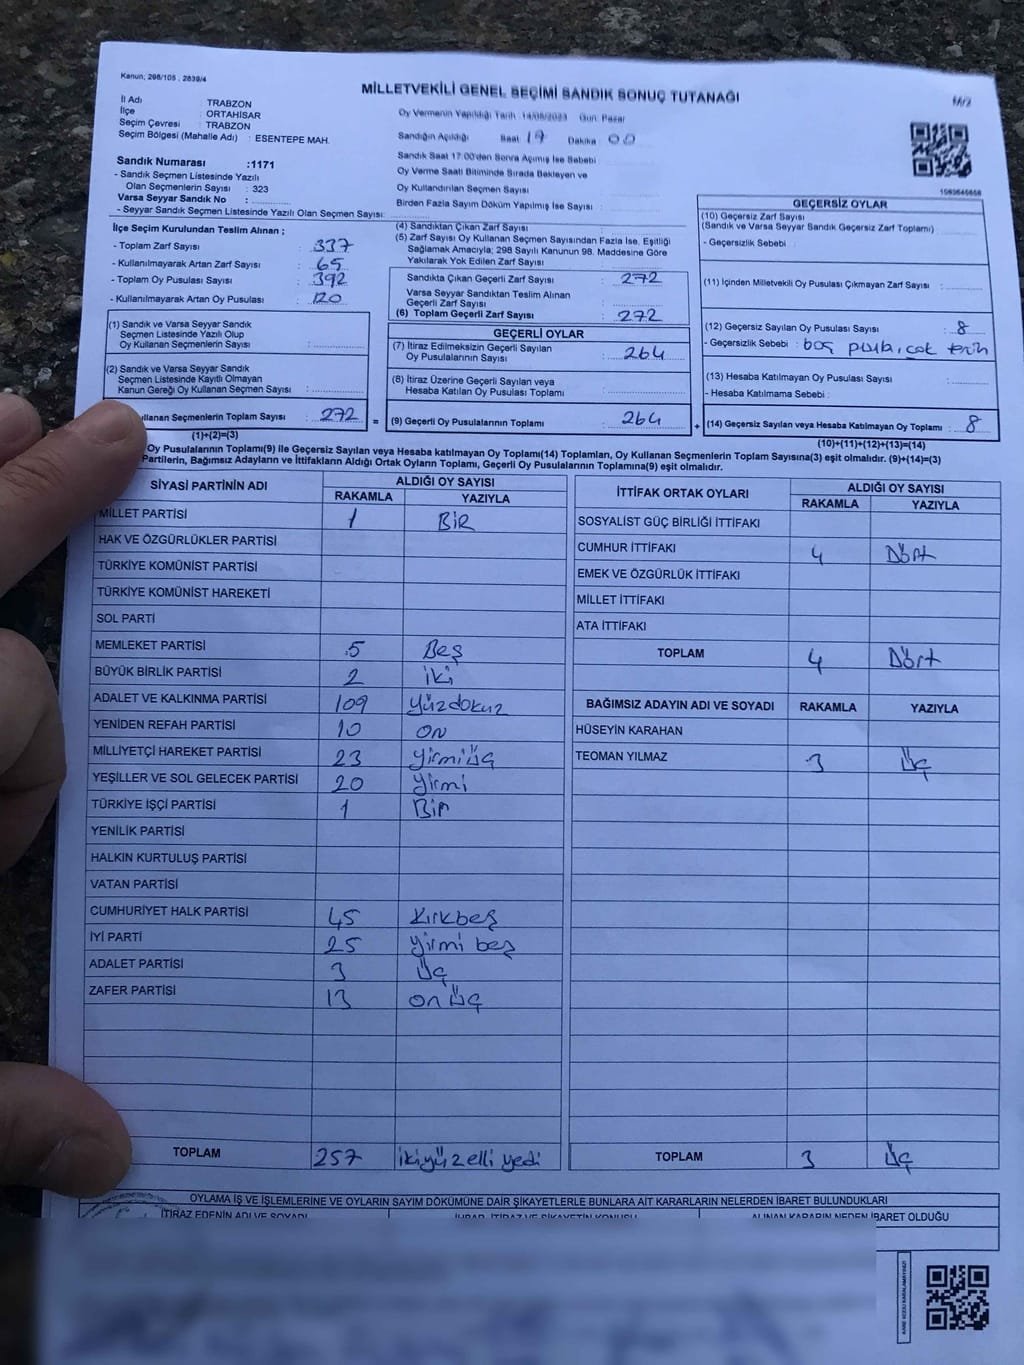 Kanun; 298/105 , 2839/4
MİLLETVEKİLİ GENEL SEÇİMİ SANDIK SONUÇ TUTANAĞI
İl Adı : TRABZON
İlçe : ORTAHİSAR
Seçim Çevresi : TRABZON
Seçim Bölgesi (Mahalle Adı) : ESENTEPE MAH.
Oy Vermenin Yapıldığı Tarih 14/05/2023 Gün: Pazar
Sandığın Açıldığı Saat 17 Dakika 00
Sandık Saat 17:00'den Sonra Açılmış İse Sebebi :
Oy Verme Saati Bitiminde Sırada Bekleyen ve
Oy Kullandırılan Seçmen Sayısı
Birden Fazla Sayım Döküm Yapılmış İse Sayısı :
Sandık Numarası :1171
- Sandık Seçmen Listesinde Yazılı
Olan Seçmenlerin Sayısı : 323
Varsa Seyyar Sandık No :
- Seyyar Sandık Seçmen Listesinde Yazılı Olan Seçmen Sayısı:
İlçe Seçim Kurulundan Teslim Alınan ;
- Toplam Zarf Sayısı : 337
- Kullanılmayarak Artan Zarf Sayısı : 65
- Toplam Oy Pusulası Sayısı : 392
- Kullanılmayarak Artan Oy Pusulası : 120
(1) Sandık ve Varsa Seyyar Sandık
Seçmen Listesinde Yazılı Olup
Oy Kullanan Seçmenlerin Sayısı :
(2) Sandık ve Varsa Seyyar Sandık
Seçmen Listesinde Kayıtlı Olmayan
Kanun Gereği Oy Kullanan Seçmen Sayısı :
ullanan Seçmenlerin Toplam Sayısı : 272 =
(1)+(2)=(3)
(4) Sandıktan Çıkan Zarf Sayısı :
(5) Zarf Sayısı Oy Kullanan Seçmen Sayısından Fazla İse, Eşitliği
Sağlamak Amacıyla; 298 Sayılı Kanunun 98. Maddesine Göre
Yakılarak Yok Edilen Zarf Sayısı :
Sandıkta Çıkan Geçerli Zarf Sayısı : 272
Varsa Seyyar Sandıktan Teslim Alınan
Geçerli Zarf Sayısı :
(6) Toplam Geçerli Zarf Sayısı : 272
GEÇERLİ OYLAR
(7) İtiraz Edilmeksizin Geçerli Sayılan
Oy Pusulalarının Sayısı : 264
(8) İtiraz Üzerine Geçerli Sayılan veya
Hesaba Katılan Oy Pusulası Toplamı :
(9) Geçerli Oy Pusulalarının Toplamı : 264 +
GEÇERSİZ OYLAR
(10) Geçersiz Zarf Sayısı
(Sandık ve Varsa Seyyar Sandık Geçersiz Zarf Toplamı) :
- Geçersizlik Sebebi :
(11) İçinden Milletvekili Oy Pusulası Çıkmayan Zarf Sayısı :
(12) Geçersiz Sayılan Oy Pusulası Sayısı : 8
- Geçersizlik Sebebi : boş
(13) Hesaba Katılmayan Oy Pusulası Sayısı :
- Hesaba Katılmama Sebebi :
(14) Geçersiz Sayılan veya Hesaba Katılmayan Oy Toplamı : 8
(10)+(11)+(12)+(13)=(14)
Oy Pusulalarının Toplamı(9) ile Geçersiz Sayılan veya Hesaba katılmayan Oy Toplamı(14) Toplamları, Oy Kullanan Seçmenlerin Toplam Sayısına(3) eşit olmalıdır. (9)+(14)=(3)
Partilerin, Bağımsız Adayların ve İttifakların Aldığı Ortak Oyların Toplamı, Geçerli Oy Pusulalarının Toplamına(9) eşit olmalıdır.
SİYASİ PARTİNİN ADI ALDIĞI OY SAYISI
RAKAMLA YAZIYLA
MİLLET PARTİSİ 1 BİR
HAK VE ÖZGÜRLÜKLER PARTİSİ
TÜRKİYE KOMÜNİST PARTİSİ
TÜRKİYE KOMÜNİST HAREKETİ
SOL PARTİ
MEMLEKET PARTİSİ 5 Beş
BÜYÜK BİRLİK PARTİSİ 2 iki
ADALET VE KALKINMA PARTİSİ 109 yüzdokuz
YENİDEN REFAH PARTİSİ 10 on
MİLLİYETÇİ HAREKET PARTİSİ 23 yirmiüç
YEŞİLLER VE SOL GELECEK PARTİSİ 20 yirmi
TÜRKİYE İŞÇİ PARTİSİ 1 Bir
YENİLİK PARTİSİ
HALKIN KURTULUŞ PARTİSİ
VATAN PARTİSİ
CUMHURİYET HALK PARTİSİ 45 Kırkbeş
İYİ PARTİ 25 yirmi beş
ADALET PARTİSİ 3 Üç
ZAFER PARTİSİ 13 on üç
TOPLAM 257 ikiyüz elli yedi
İTTİFAK ORTAK OYLARI ALDIĞI OY SAYISI
RAKAMLA YAZIYLA
SOSYALİST GÜÇ BİRLİĞİ İTTİFAKI
CUMHUR İTTİFAKI 4 Dört
EMEK VE ÖZGÜRLÜK İTTİFAKI
MİLLET İTTİFAKI
ATA İTTİFAKI
TOPLAM 4 Dört
BAĞIMSIZ ADAYIN ADI VE SOYADI RAKAMLA YAZIYLA
HÜSEYİN KARAHAN
TEOMAN YILMAZ 3 Üç
TOPLAM 3 Üç
OYLAMA İŞ VE İŞLEMLERİNE VE OYLARIN SAYIM DÖKÜMÜNE DAİR ŞİKAYETLERLE BUNLARA AİT KARARLARIN NELERDEN İBARET BULUNDUKLARI
İTİRAZ EDENİN ADI VE SOYADI İHBAR, İTİRAZ VE ŞİKAYETİN KONUSU ALINAN KARARIN NEDEN İBARET OLDUĞU